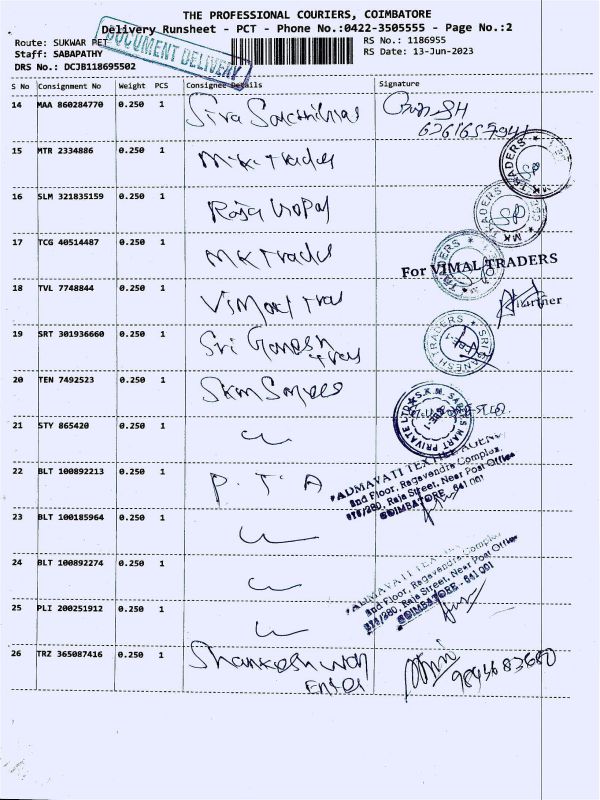 THE PROFESSIONAL COURIERS, COIMBATORE
Delivery Runsheet - PCT - Phone No.:0422-3505555 - Page No.:2
Route: SUKWAR PET
RS No.: 1186955
Staff: SABAPATHY
RS Date: 13-Jun-2023
DRS No.: DCJB118695502
DOCUMENT DELIVERY
S No Consignment No Weight PCS Consignee Details Signature
14 MAA 860284770 0.250 1
15 MTR 2334886 0.250 1 M.K. Traders
MK TRADERS
16 SLM 321835159 0.250 1 Raja Gopal
MK TRADERS
17 TCG 40514487 0.250 1 MK Trades
TRADERS
For VIMAL TRADERS
18 TVL 7748844 0.250 1 Vimal Trad
Partner
19 SRT 301936660 0.250 1 Sri Ganesh
SRI GANESH TRADERS
20 TEN 7492523 0.250 1 SKM Sarees
S.K.M. SAREES MART PRIVATE LTD
21 STY 865420 0.250 1
22 BLT 100892213 0.250 1 P. T. A
PADMAVATI TEXTILE AGENCY
2nd Floor, Ragavendra Complex,
Raja Street, Near Post Office
COIMBATORE - 641 001
23 BLT 100185964 0.250 1
24 BLT 100892274 0.250 1
PADMAVATI TEXTILE
2nd Floor, Ragavendra Complex
Raja Street, Near Post Office
COIMBATORE - 641 001
25 PLI 200251912 0.250 1
26 TRZ 365087416 0.250 1
9843683680